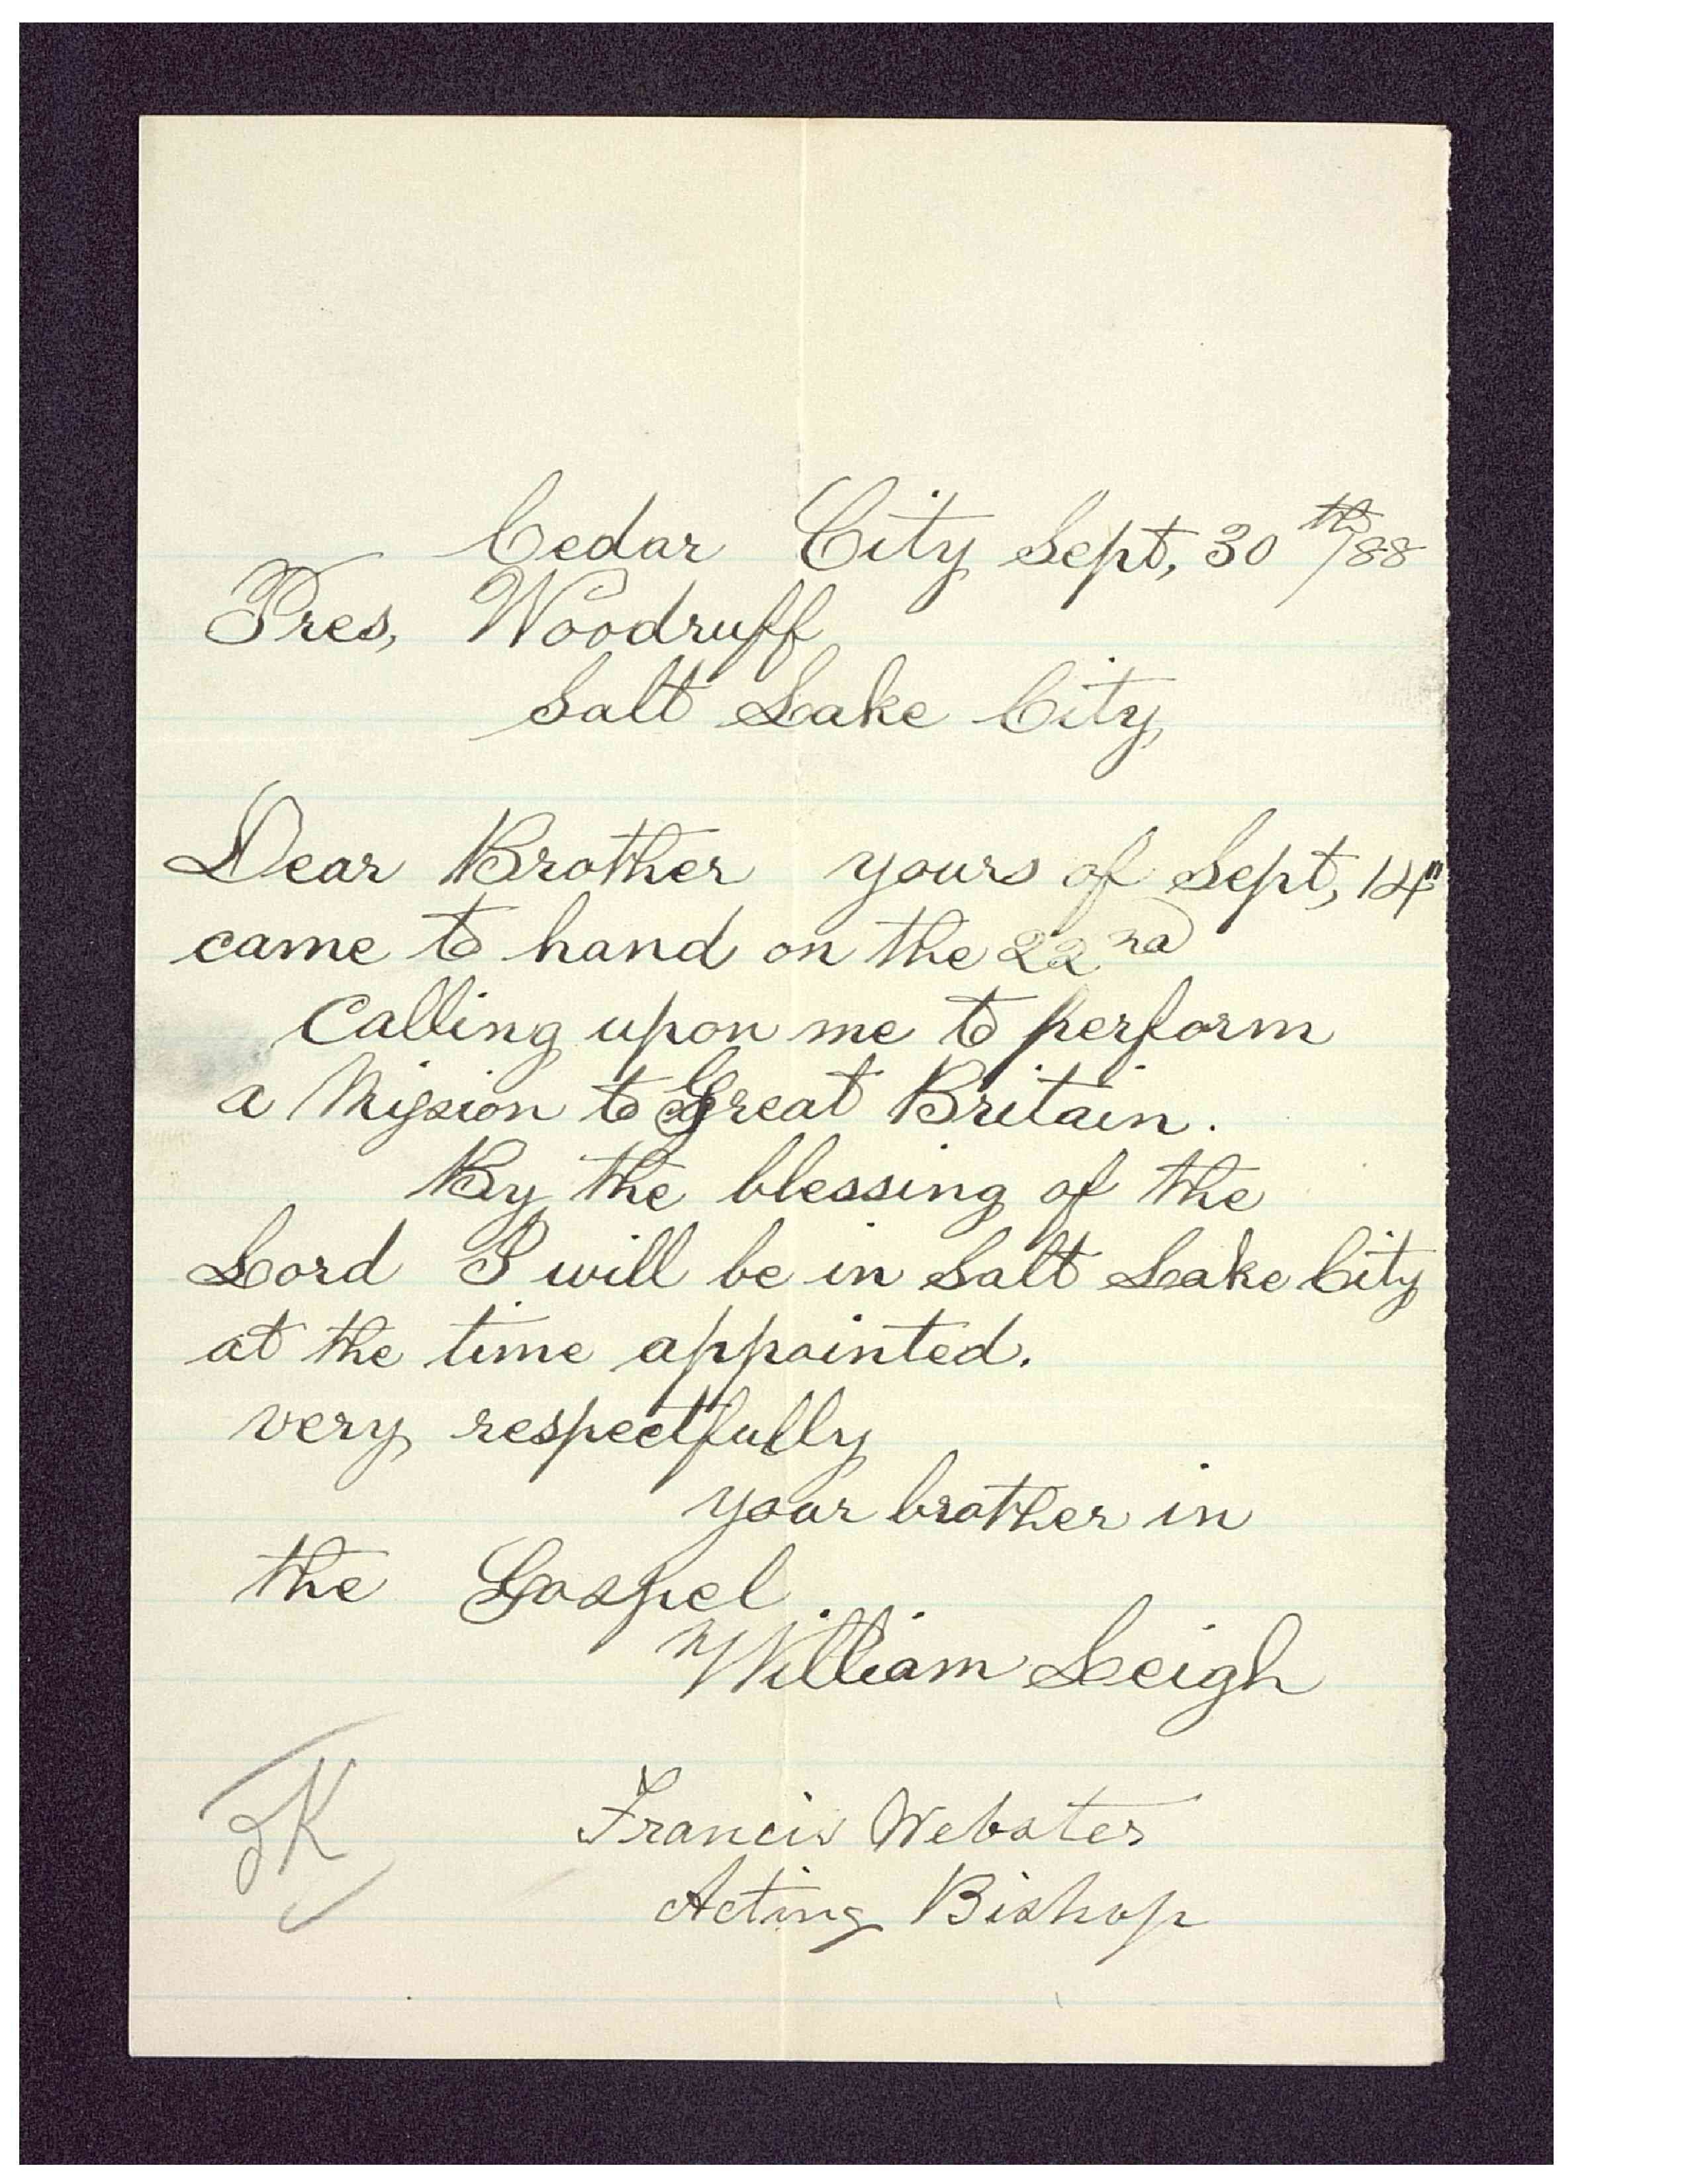 Cedar City Sept, 30th/88
Pres, Woodruff
Salt Lake City
Dear Brother yours of Sept, 14"
came to hand on the 22nd
Calling upon me to perform
a Mission to Great Britain.
By the blessing of the
Lord I will be in Salt Lake City
at the time appointed.
very respectfully
your brother in
the Gospel
William Leigh
Francis Webster
Acting Bishop